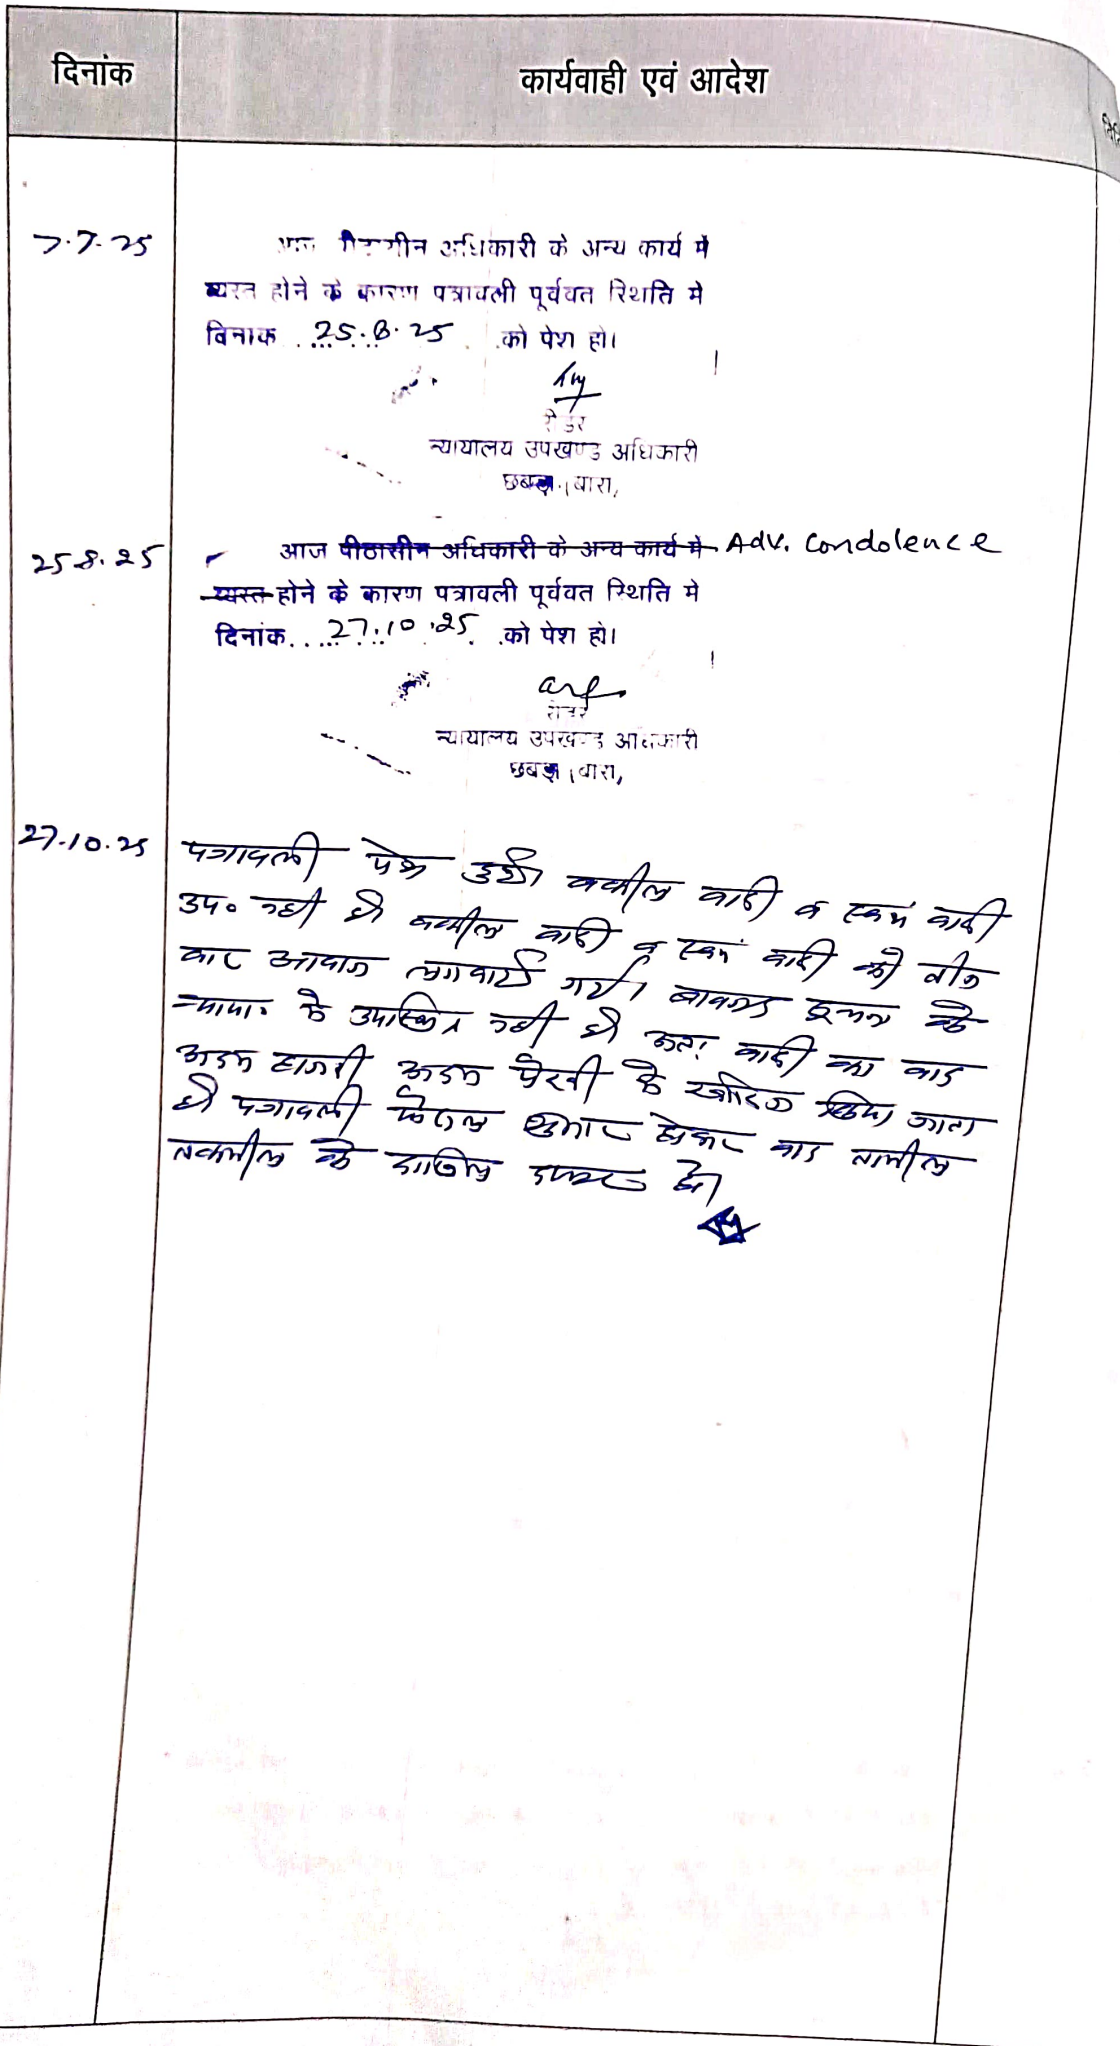 दिनांक
कार्यवाही एवं आदेश
7.7.25
आज पीठासीन अधिकारी के अन्य कार्य मे
व्यस्त होने के कारण पत्रावली पूर्ववत स्थिति मे
दिनांक . 25.8.25 . को पेश हो।
रीडर
न्यायालय उपखण्ड अधिकारी
छबड़ा (बारा)
25.8.25
आज पीठासीन अधिकारी के अन्य कार्य मे Adv. Condolence
व्यस्त होने के कारण पत्रावली पूर्ववत स्थिति मे
दिनांक. . 27.10.25 . .को पेश हो।
रीडर
न्यायालय उपखण्ड अधिकारी
छबड़ा (बारा)
27.10.25
पत्रावली पेश हुयी वकील वादी व स्वयं वादी
उप० नही है वकील वादी व स्वयं वादी को तीन
बार आवाज लगवाई गयी। बावजूद इसके
न्याया० मे उपस्थित नही है अतः वादी का वाद
अदम हाजरी अदम पैरवी मे खारिज किया जाता
है पत्रावली फैसल शुमार होकर बाद तामील
तकमील के दाखिल दफ्तर हो।